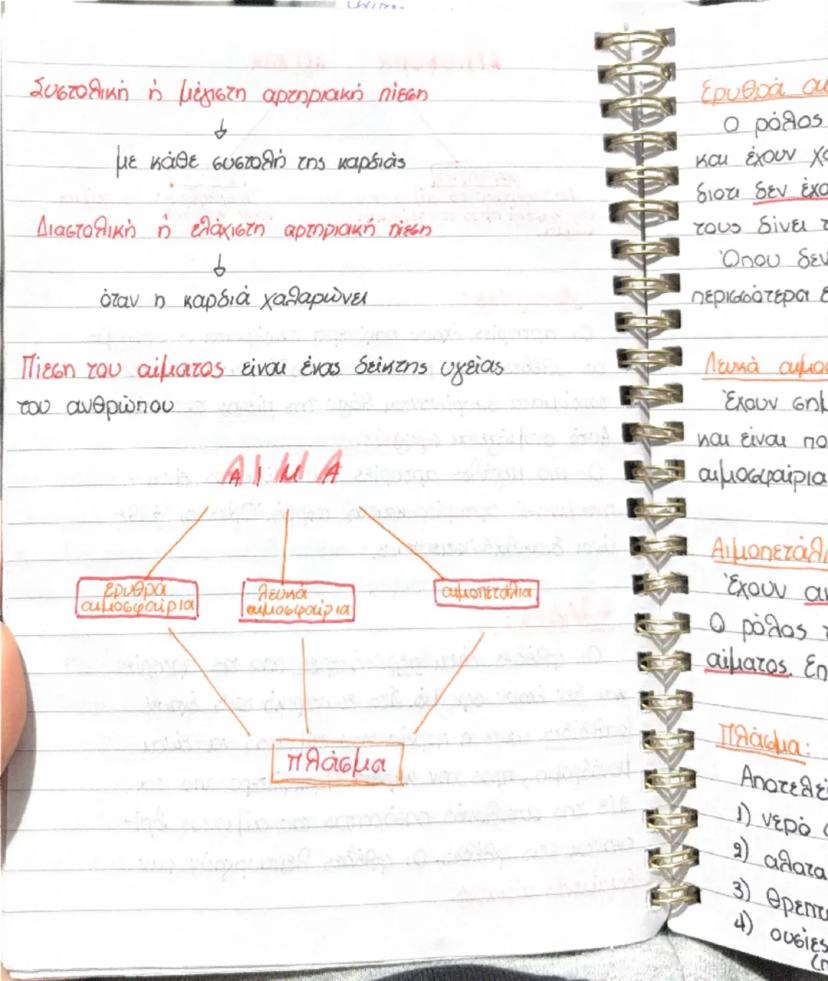 Συστολική ή μέγιστη αρτηριακή πίεση
↓
με κάθε συστολή της καρδιάς
Διαστολική ή ελάχιστη αρτηριακή πίεση
↓
όταν η καρδιά χαλαρώνει
Πίεση του αίματος είναι ένας δείκτης υγείας
του ανθρώπου
ΑΙΜΑ
ερυθρά
αιμοσφαίρια
λευκά
αιμοσφαίρια
αιμοπετάλια
πλάσμα
Ερυθρά
Ο ρόλος
και έχουν
διοτι δεν
τους δίνει
Όπου δεν
περισσότερα
Λευκά
Έχουν
και είναι
αιμοσφαίρια
Έχουν
Ο ρόλος
αίματος.
Πλάσμα:
1) νερό
2) αλατα
3)
4) ουσίες